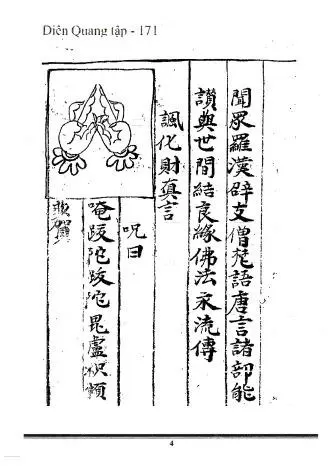 Diên Quang tập - 171
聞眾羅漢辟支僧梵語唐言諸部能
讚與世間結良緣佛法永流傳
諷化財真言
呪曰
唵跋陀跋陀毘盧枳
4